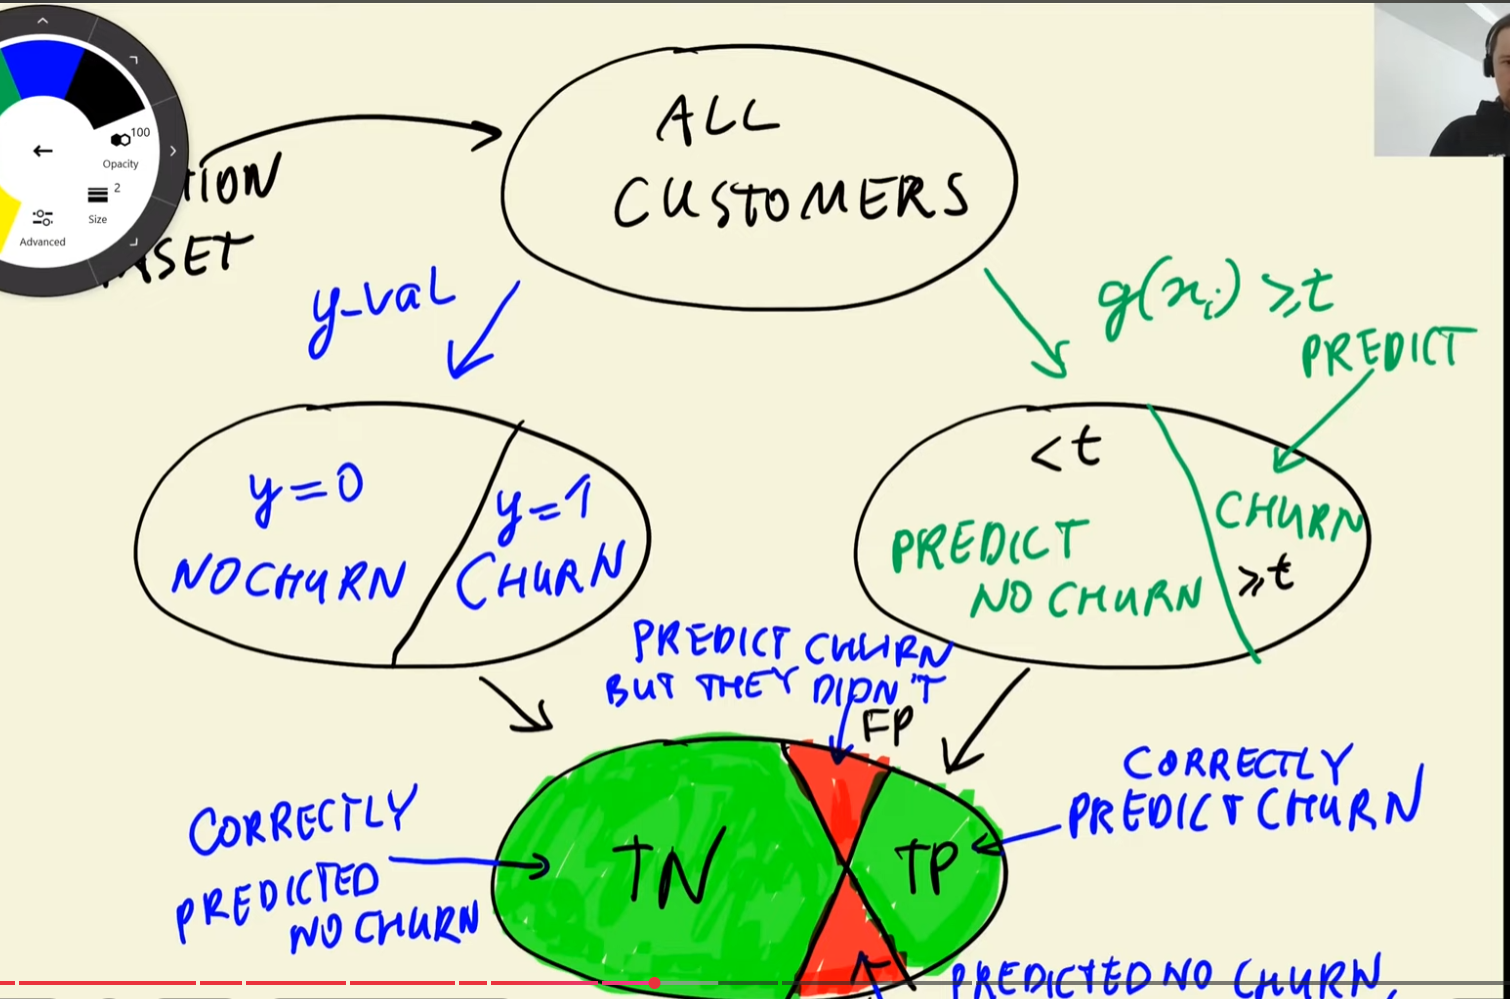 ALL
CUSTOMERS
100
Opacity
2
Size
Advanced
y-val
g(xi) ≥t
PREDICT
y=0
NO CHURN
y=1
CHURN
<t
PREDICT
NO CHURN
CHURN
≥t
PREDICT CHURN
BUT THEY DIDN'T
FP
CORRECTLY
PREDICT CHURN
CORRECTLY
PREDICTED
NO CHURN
TN
TP
PREDICTED NO CHURN,